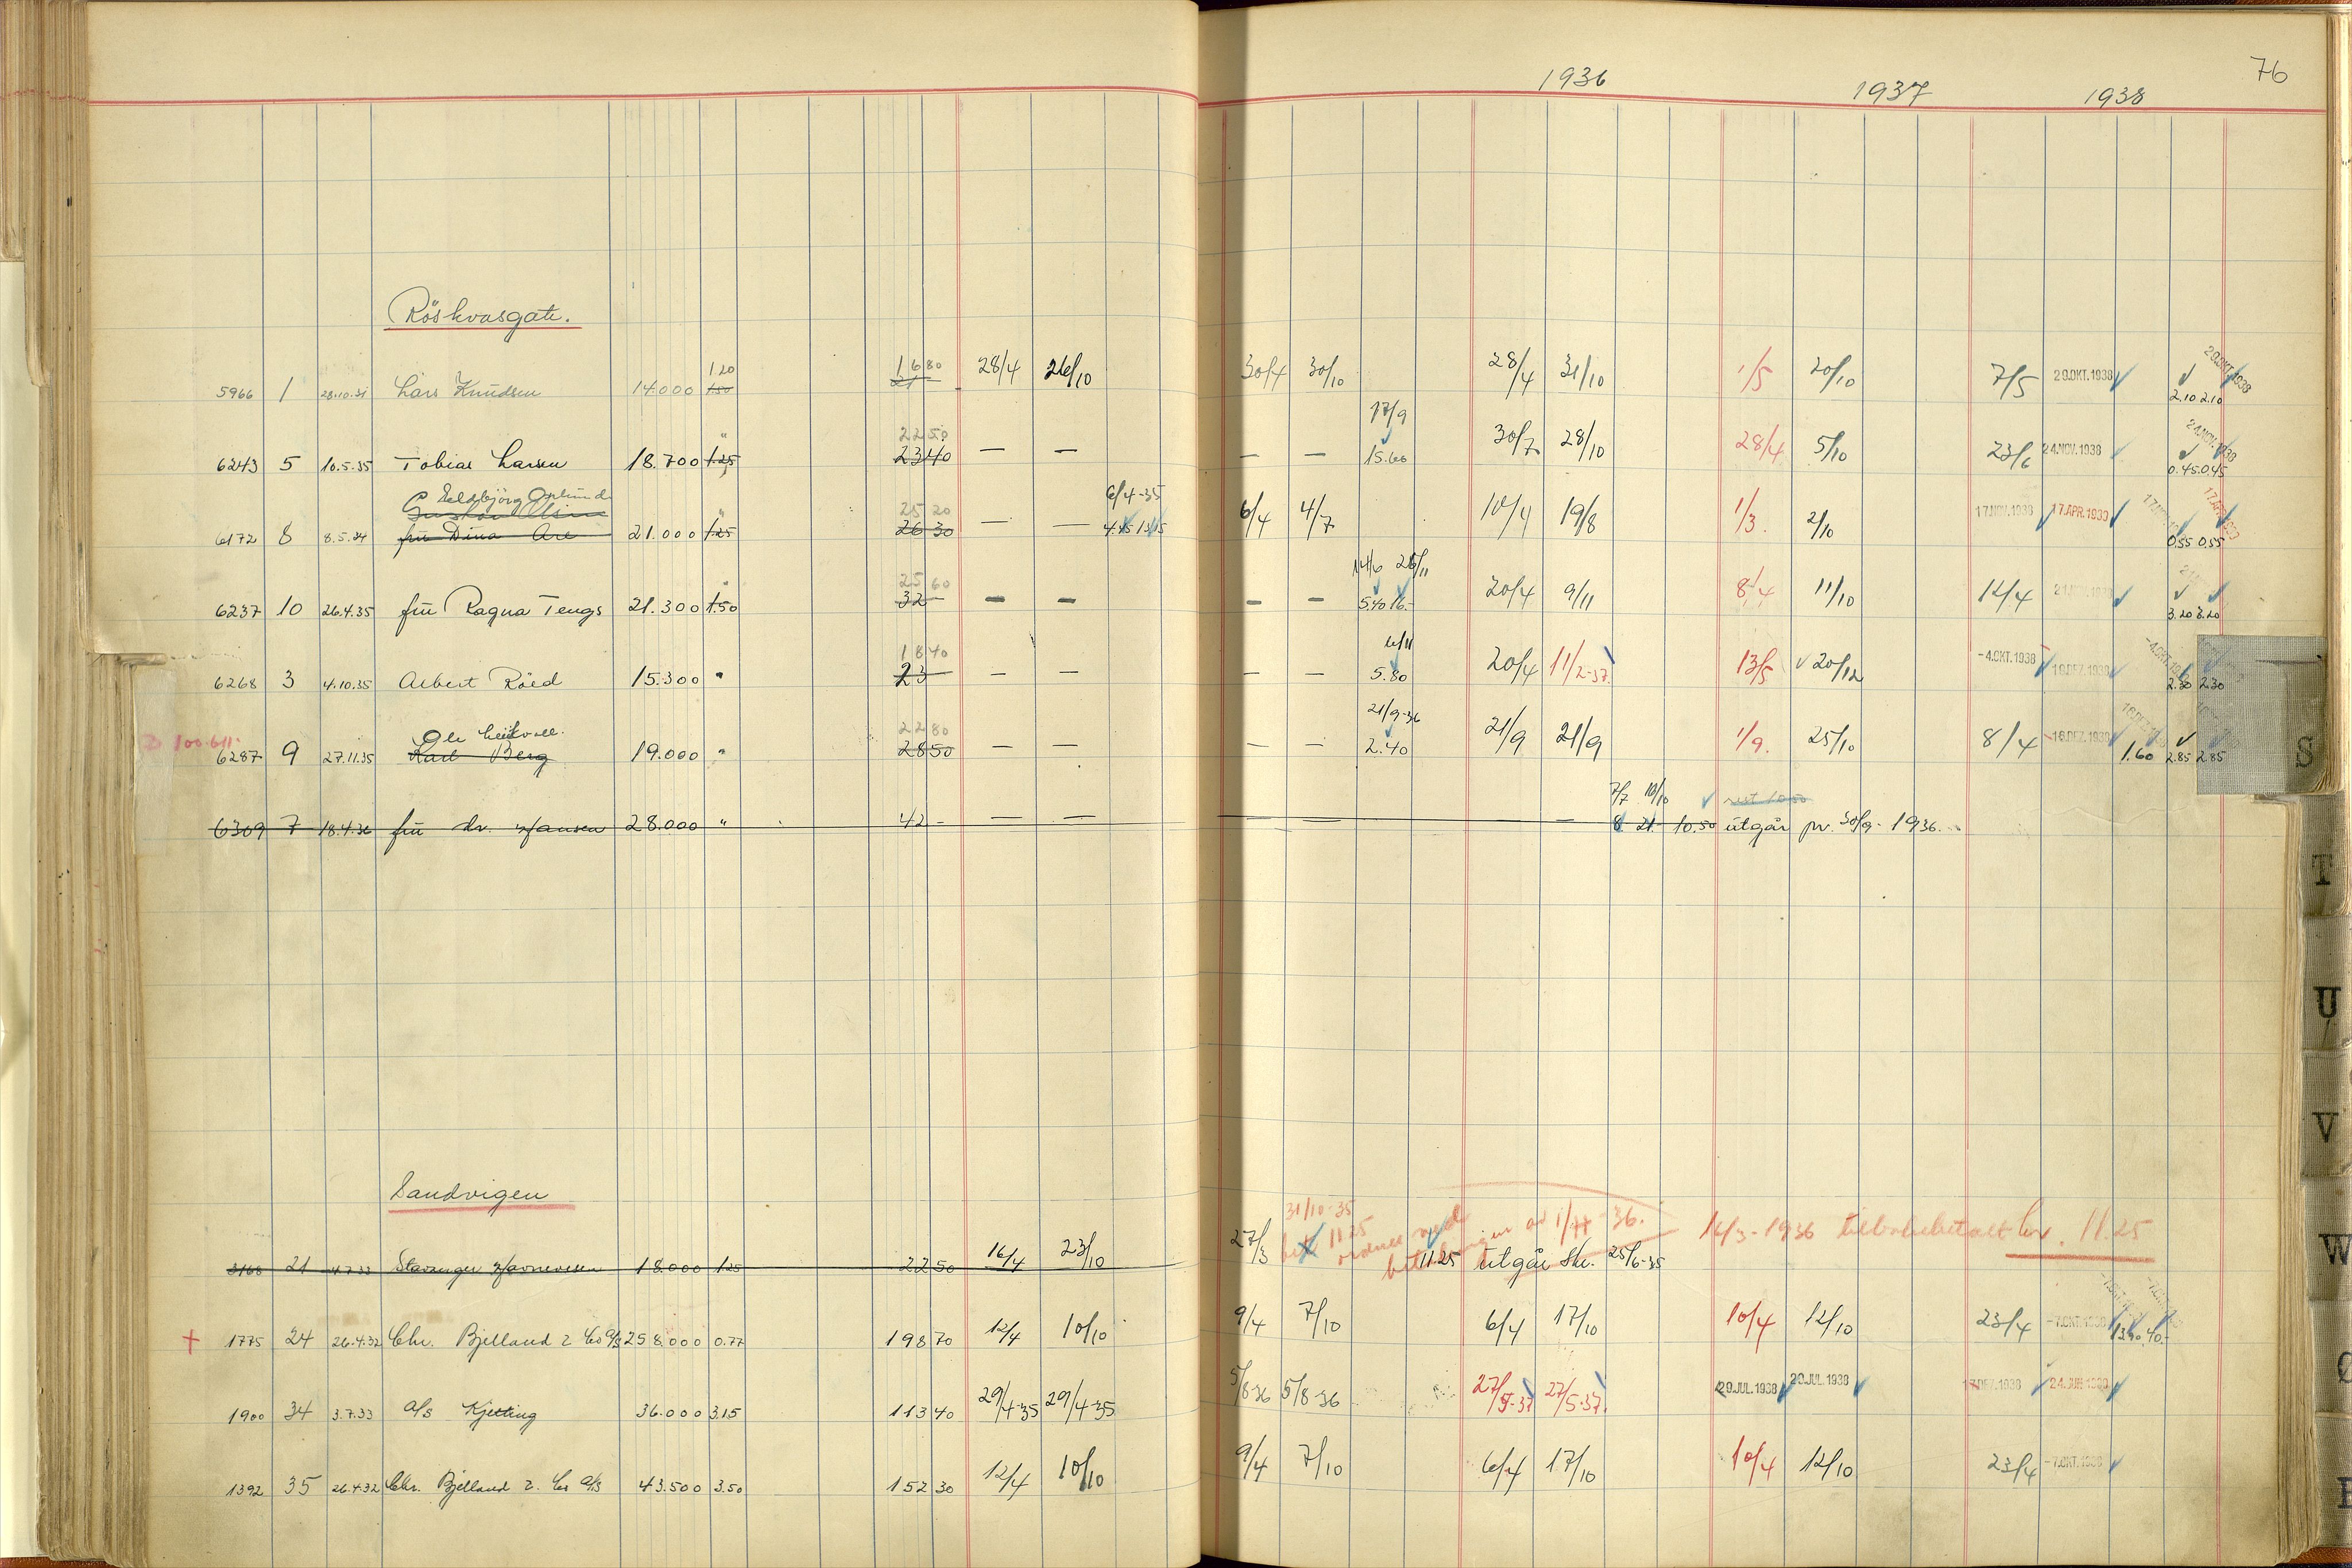 1936 1937 1938 76
Röskvasgate.
5966 1 28.10.31 Lars Knudsen 14.000 1.20 1.50 16 80 21 - 28/4 26/10 30/4 30/10 28/4 31/10 1/5 20/10 7/5 29.OKT.1938 29.OKT.1938 2.10 2.10
6243 5 10.5.35 Tobias Larsen 18.700 " 1.25 22 50 23 40 — — — — 17/9 15.60 30/7 28/10 28/4 5/10 23/6 24.NOV.1938 24.NOV.1938 0.45 0.45
6172 8 8.5.34 fru Dina Are 21.000 " 1.25 25 20 26 30 — — 6/4-35 6/4 4/7 10/4 19/8 1/3. 2/10 17.NOV.1938 17.APR.1939 0.55 0.55
6237 10 26.4.35 frü Ragna Tengs 21.300 " 1.50 25 60 32 - — — — — 14/6 26/11 5.40 16.- 20/4 9/11 8/4 11/10 12/4 3.20 3.20
6268 3 4.10.35 Albert Röed 15.300 " 18 40 23 - — — — — 6/11 5.80 20/4 11/2-37. 13/5 20/12 -4.OKT.1938 16.DEZ.1938 2.30 2.30
6287 9 27.11.35 Karl Berg 19.000 " 22 80 28 50 — — — — 21/9-36 2.40 21/9 21/9 1/9. 25/10 8/4 16.DEZ.1938 1.60 2.85 2.85 S
6309 7 18.4.36 frü dr. Hansen 28.000 " 42 - — — — — — 7/7 10/10 8. 21.- 10.50 rest 10.50 ütgår pr. 30/9-1936.
T
U
V
Sandvigen
31/10-35 bet. 11.25 ordnes ved 1/4-36. 16/3-1936 tilbakebetalt kr. 11.25 W
3168 21 4.7.33 Stavanger Havnevesen 18.000 1.25 22 50 16/4 23/10 27/3 11.25 ütgår 25/6-35
+ 1775 24 26.4.32 Chr. Bjelland & Co a/s 258.000 0.77 198 70 12/4 10/10 9/4 7/10 6/4 17/10 10/4 12/10 23/4 -7.OKT.1938
1900 34 3.7.33 a/s Kjetting 36.000 3.15 113 40 29/4-35 29/4-35 5/8-36 5/8-36 27/5-37 27/5-37. 29.JUL.1938 29.JUL.1938
1392 35 26.4.32 Chr. Bjelland & Co a/s 43.500 3.50 152 30 12/4 10/10 9/4 7/10 6/4 17/10 10/4 12/10 23/4 -7.OKT.1938